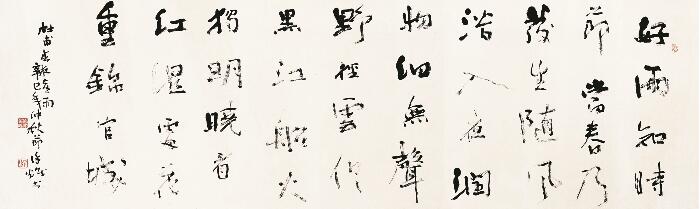 好雨知時
節當春乃
發生隨風
潛入夜潤
物細無聲
野徑雲俱
黑江船火
獨明曉看
紅濕處花
重錦官城
杜甫春夜喜雨
辛巳年仲秋節